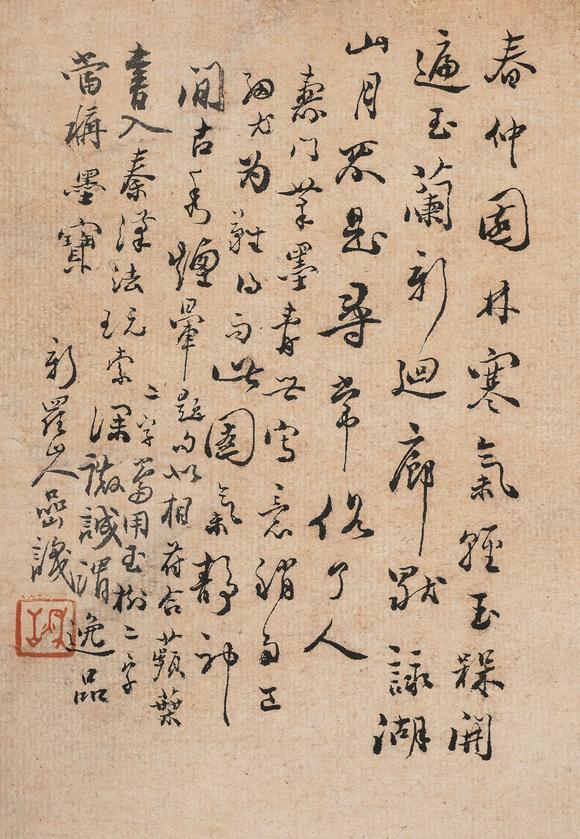 春仲園林寒氣輕玉槑開
遍玉蘭新迴廊默詠湖
山月不是尋常俗子人
壽門筆墨青世寫意稍多工
細尤為難得而此園氣靜神
閒古秀煙暈題句以相符合蘋葉
二字當用玉樹二字
書入秦漢法玩索深微誠謂逸品
當稱墨寶
新羅山人嵒識